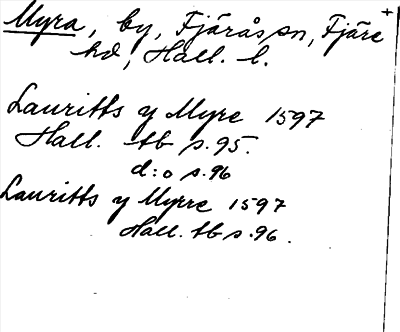 Myra, by, Fjärås sn, Fjäre +
hd, Hall. l.
Lauritts y Myre 1597
Hall. tb s. 95.
d:o s. 96
Lauritts y Myrre 1597
Hall. tb s. 96.